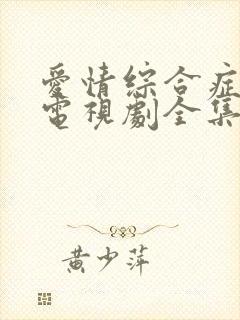 愛情綜合症
電視劇全集
黄少萍